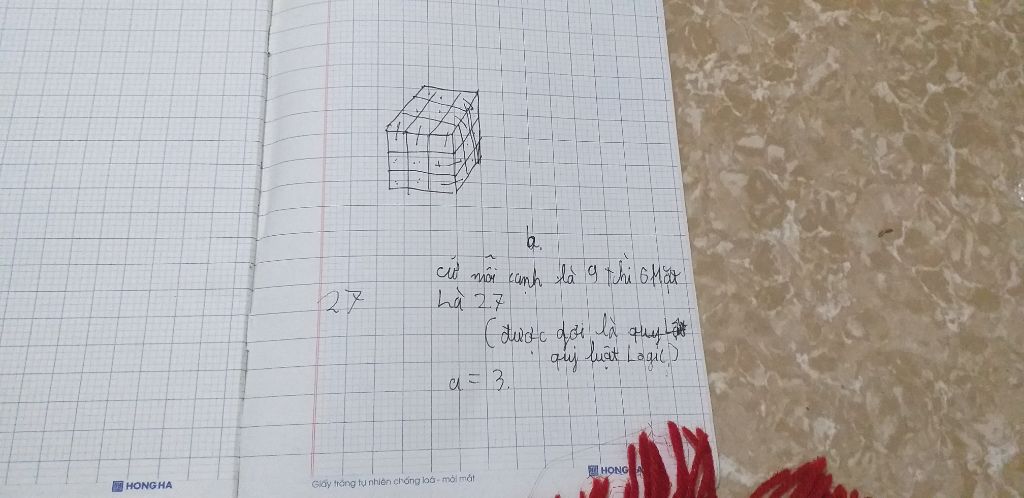 b.
cứ mỗi cạnh là 9 thì 6 Mặt
27
Là 27
(được gọi là quy
quy luật Logic)
a = 3.
HONG HA
Giấy trắng tự nhiên chống loá - mỏi mắt
HONG